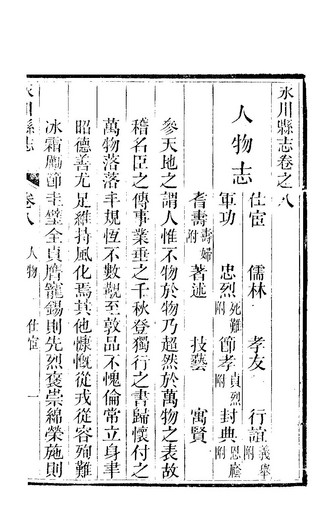 永川縣志卷之八
人物志
仕宦 儒林 孝友 行誼義舉附
軍功 忠烈死難附 節孝貞烈附 封典恩廕附
耆壽壽婦附 著述 技藝 寓賢
參天地之謂人惟不物於物乃超然於萬物之表故
稽名臣之傳事業垂之千秋登獨行之書歸懷付之
萬物落落丰規恆不數覯至敦品不愧倫常立身聿
昭德善尤足維持風化焉其他慷慨從戎從容殉難
冰霜勵節圭璧全貞膺寵錫則先烈褒崇綿榮施則
永川縣志 卷八 人物 仕宦 一